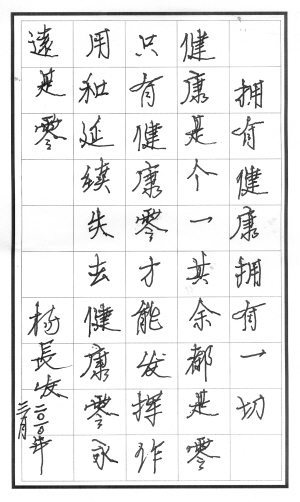 拥有健康拥有一切
健康是个一其余都是零
只有健康零才能发挥作
用和延续失去健康零永
远是零
杨長发
二〇一〇年
三月